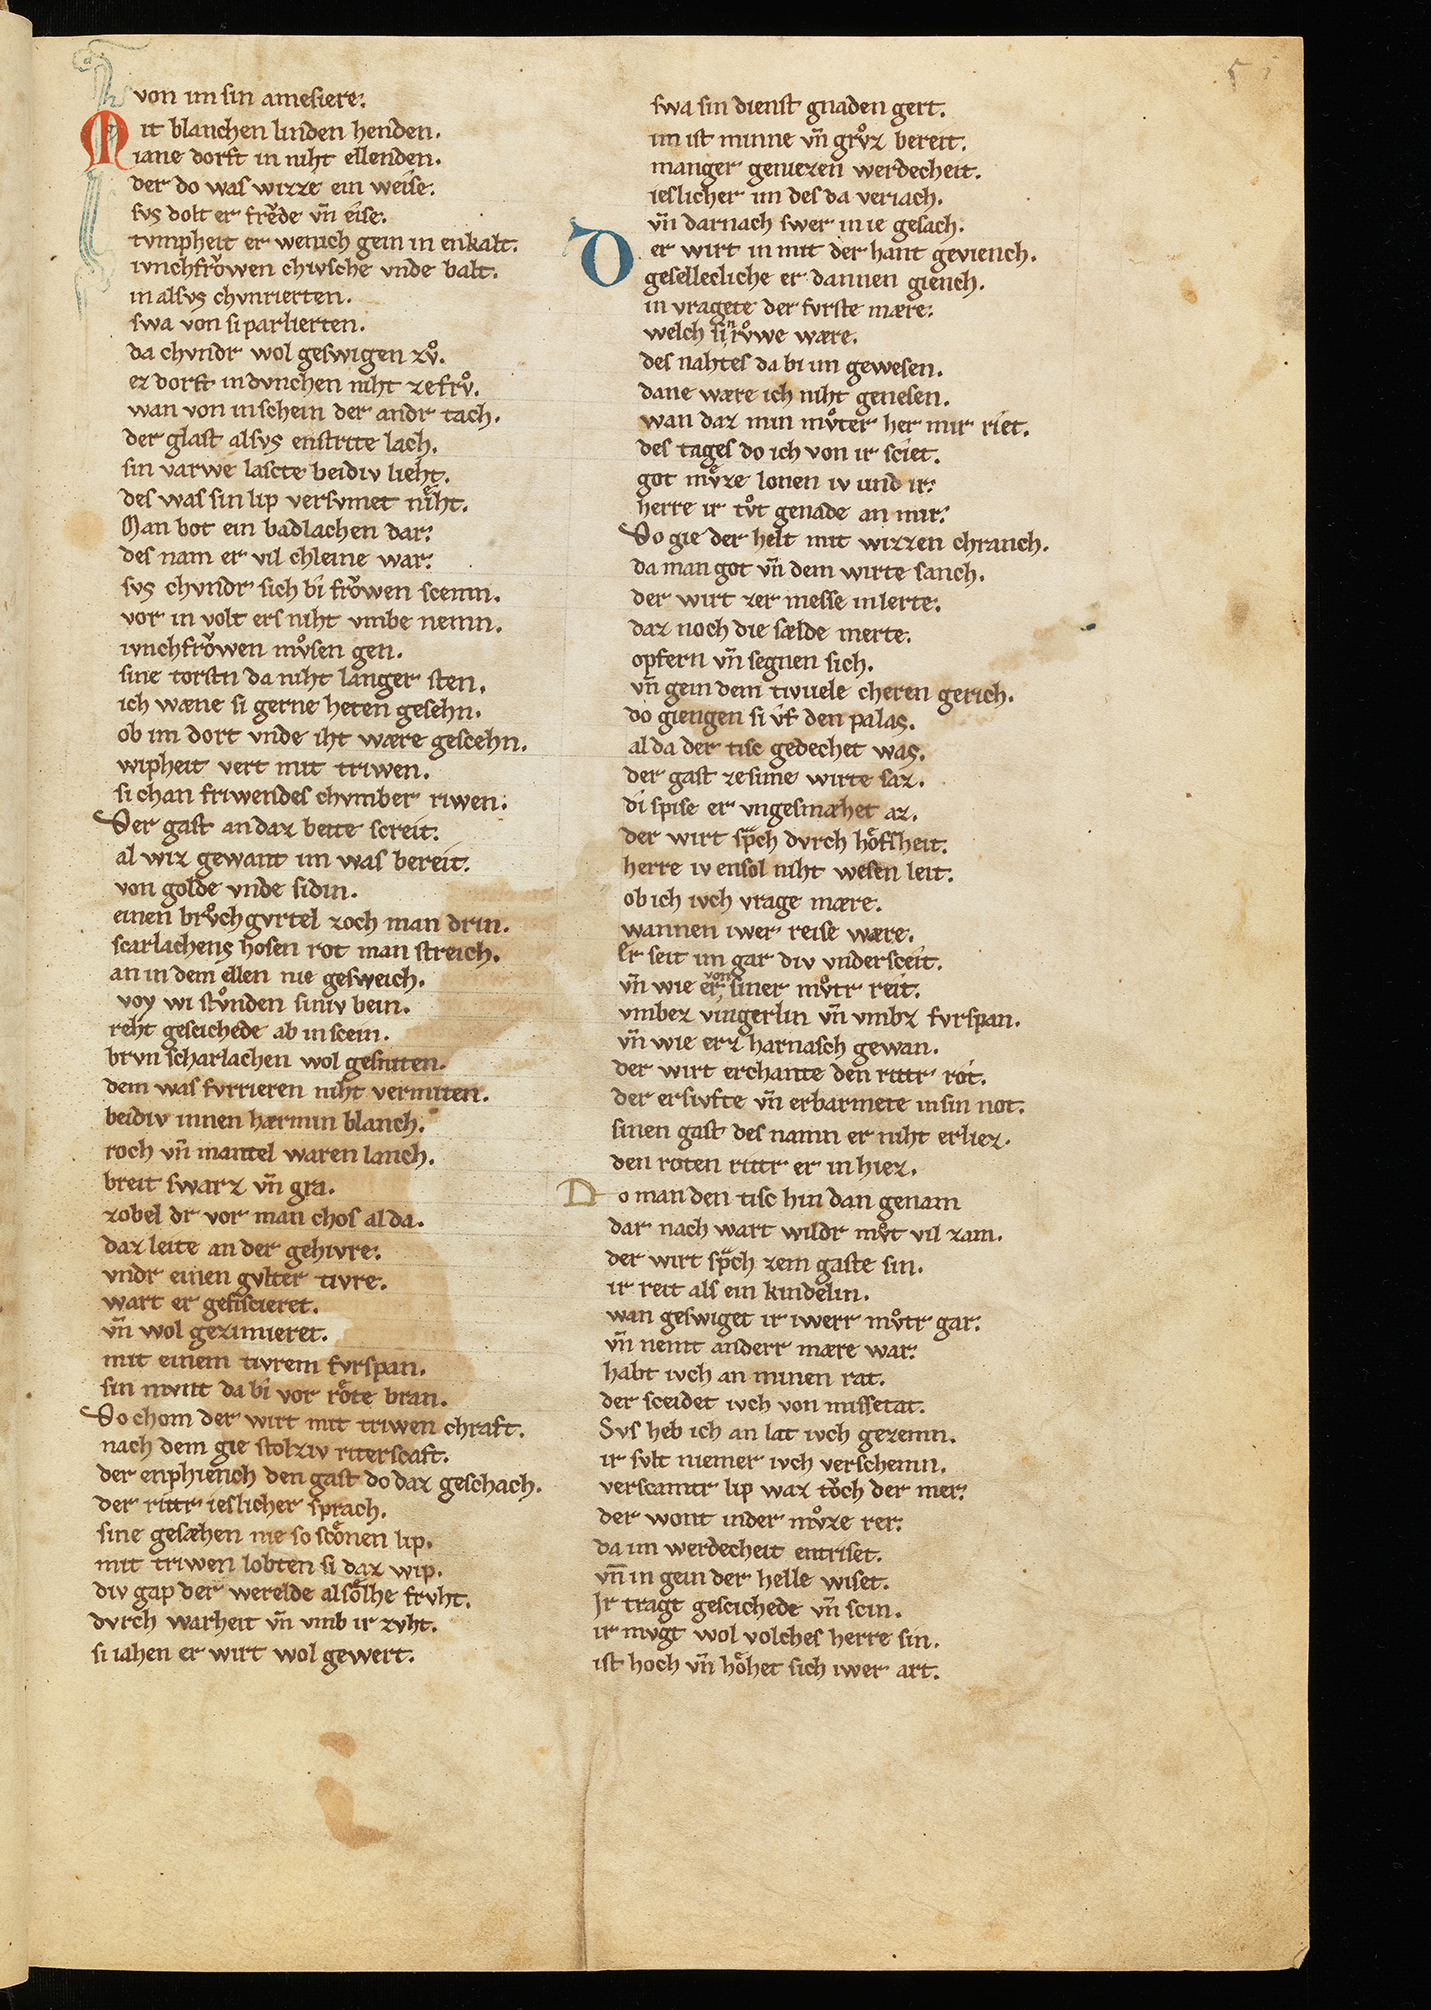 von im sin amesiere.
Mit blanchen linden henden.
iane dorft in niht ellenden.
der do was wizze ein weise.
sus dolt er frẽde vñ eise.
tvmpheit er wenich gein in enkalt.
ivnchfrowen chivsche vnde balt.
in alsvs chvnrierten.
swa von si parlierten.
da chvndr wol geswigen zvͦ.
ez dorft in dvnchen niht ze frvͦ.
wan von in schein der andr tach.
der glast alsvs enstrite lach.
sin varwe lascte beidiv lieht.
des was sin lip versvmet niht.
Man bot ein badlachen dar.
des nam er vil chleine war.
svs chvndr sich bi frowen scemn.
vor in volt ers niht vmbe nemn.
ivnchfrowen mvͦsen gen.
sine torstn da niht langer sten.
ich wæne si gerne heten gesehn.
ob im dort vnde iht wære gescehn.
wipheit vert mit triwen.
si chan friwendes chvmber riwen.
Der gast an daz bette screit.
al wiz gewant im was bereit.
von golde vnde sidin.
einen brvͦchgvrtel zoch man drin.
scarlachens hosen rot man streich.
an in dem ellen nie gesweich.
voy wi stvͦnden siniv bein.
reht gescichede ab in scein.
brvn scharlachen wol gesniten.
dem was fvrrieren niht vermiten.
beidiv innen hærmin blanch.
roch vñ mantel waren lanch.
breit swarz vñ gra.
zobel dr vor man chos al da.
daz leite an der gehivre.
vndr einen gvlter tivre.
wart er gefiscieret.
vñ wol gezimieret.
mit einem tivrem fvrspan.
sin mvnt da bi vor rote bran.
Do chom der wirt mit triwen chraft.
nach dem gie stolziv riterscaft.
der enphiench den gast do daz geschach.
der rittr ieslicher sprach.
sine gesæhen nie so scoͤnen lip.
mit triwen lobten si daz wip.
div gap der werelde alsoͤlhe frvht.
dvrch warheit vñ vmb ir zvht.
si iahen er wirt wol gewert.
swa sin dienst gnaden gert.
im ist minne vñ grvͦz bereit.
manger geniezen werdecheit.
ieslicher im des da veriach.
vñ darnach swer in ie gesach.
Der wirt in mit der hant geviench.
gesellecliche er dannen giench.
in vragete der fvrste mære.
welch sin rvͦwe wære.
des nahtes da bi im gewesen.
dane wære ich niht genesen.
wan daz min mvͦter her mir riet.
des tages do ich von ir sciet.
got mvͤze lonen iv und ir.
herre ir tvͦt genade an mir.
Do gie der helt mit wizzen chranch.
da man got vñ dem wirte sanch.
der wirt zer messe in lerte.
daz noch die sælde merte.
opfern vñ segnen sich.
vñ gein dem tivuele cheren gerich.
do giengen si vf den palas.
al da der tisc gedechet was.
der gast ze sime wirte saz.
di spise er vngesmæhet az.
der wirt spͣch dvrch hoͤfsheit.
herre iv ensol niht wesen leit.
ob ich ivch vrage mære.
wannen iwer reise wære.
Er seit im gar div vndersceit.
vñ wie er von siner mvͦtr reit.
vmbez vingerlin vñ vmbz fvrspan.
vñ wie erz harnasch gewan.
der wirt erchante den rittr rot.
der ersivfte vñ erbarmete in sin not.
sinen gast des namn er niht erliez.
den roten rittr er in hiez.
Do man den tisc hin dan genam
dar nach wart wildr mvͦt vil zam.
der wirt spͣch zem gaste sin.
ir reit als ein kindelin.
wan geswiget ir iwerr mvͦtr gar.
vñ nemt anderr mære war.
habt ivch an minen rat.
der sceidet ivch von missetat.
Svs heb ich an lat ivch gezemn.
ir svlt niemer ivch verschemn.
verscamtr lip waz toch der mer.
der wont inder mvͦze rer.
da im werdecheit entriset.
vñ in gein der helle wiset.
Ir tragt gescichede vñ scin.
ir mvgt wol volches herre sin.
ist hoch vñ hoͤhet sich iwer art.